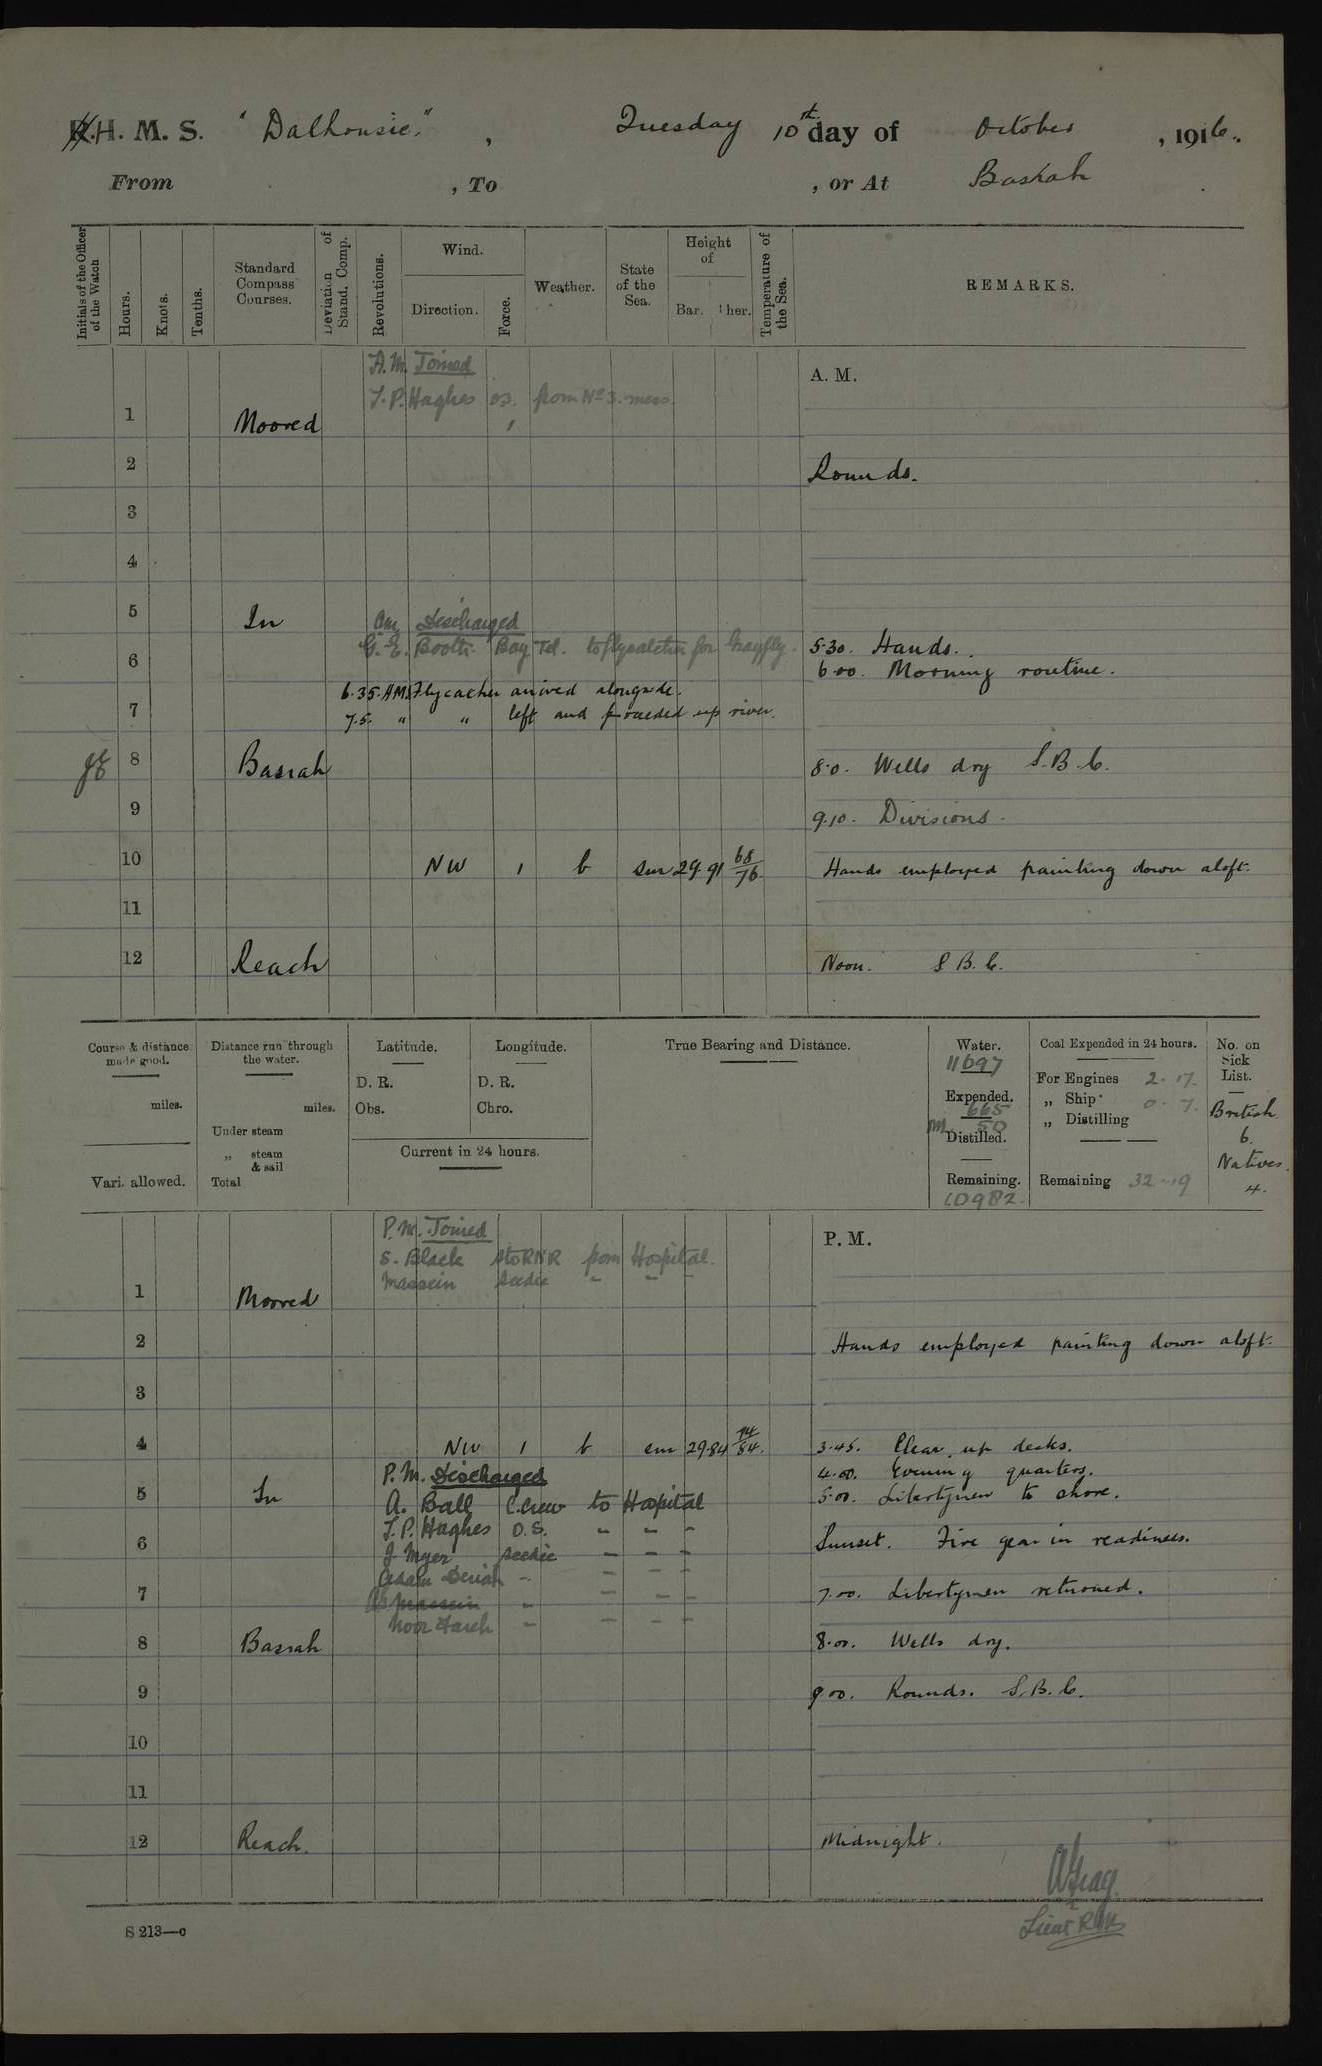 H. M. S. "Dalhousie", Tuesday 10th day of October, 1916.
From , To , or At Basrah
Initials of the Officer of the Watch
Hours.
Knots.
Tenths.
Standard Compass Courses.
Deviation of Stand. Comp.
Revolutions.
Wind.
Direction.
Force.
Weather.
State of the Sea.
Height of
Bar. Ther.
Temperature of the Sea.
REMARKS.
A.M. Joined
A. M.
T. P. Hughes O.S. from No 3. mess.
1 Moored
2 Rounds.
3
4
5 In Am Discharged
G. E. Booth Boy Tel. to Flycatcher for Grayfly.
5.30. Hands.
6
6.00. Morning routine.
6.35. AM. Flycatcher arrived alongside.
7
7.5. " " left and proceeded up river.
8 Basrah 8.0. Wells dry S.B.C.
9 9.10. Divisions.
10 NW 1 b sm 29.91 68/76 Hands employed painting down aloft.
11
12 Reach Noon. S.B.C.
Course & distance made good.
miles.
Vari. allowed.
Distance run through the water.
miles.
Under steam
„ steam & sail
Total
Latitude.
D. R.
Obs.
Longitude.
D. R.
Chro.
Current in 24 hours.
True Bearing and Distance.
Water.
11697
Expended.
665
50
Distilled.
Remaining.
10982.
Coal Expended in 24 hours.
For Engines 2.17.
„ Ship 0.7.
„ Distilling
Remaining 32.19
No. on Sick List.
British
6.
Natives.
4.
P.M. Joined
P. M.
S. Black Sto RNR from Hospital.
Massein Seedie " " "
1 Moored
2 Hands employed painting down aloft.
3
4 NW 1 b sm 29.84 74/84. 3.45. Clear up decks.
P.M. Discharged
4.00. Evening quarters.
5 In A. Ball C.Crew to Hospital
5.00. Libertymen to shore.
T. P. Hughes O.S. " " "
6 Sunset. Fire gear in readiness.
J. Myer Seedie " " "
Adam " " " "
7 Massein " " " " 7.00. Libertymen returned.
Noor Fareh " " " "
8 Basrah 8.00. Wells dry.
9 9.00. Rounds. S.B.C.
10
11
12 Reach. Midnight.
Lieut RIM
S 213—c